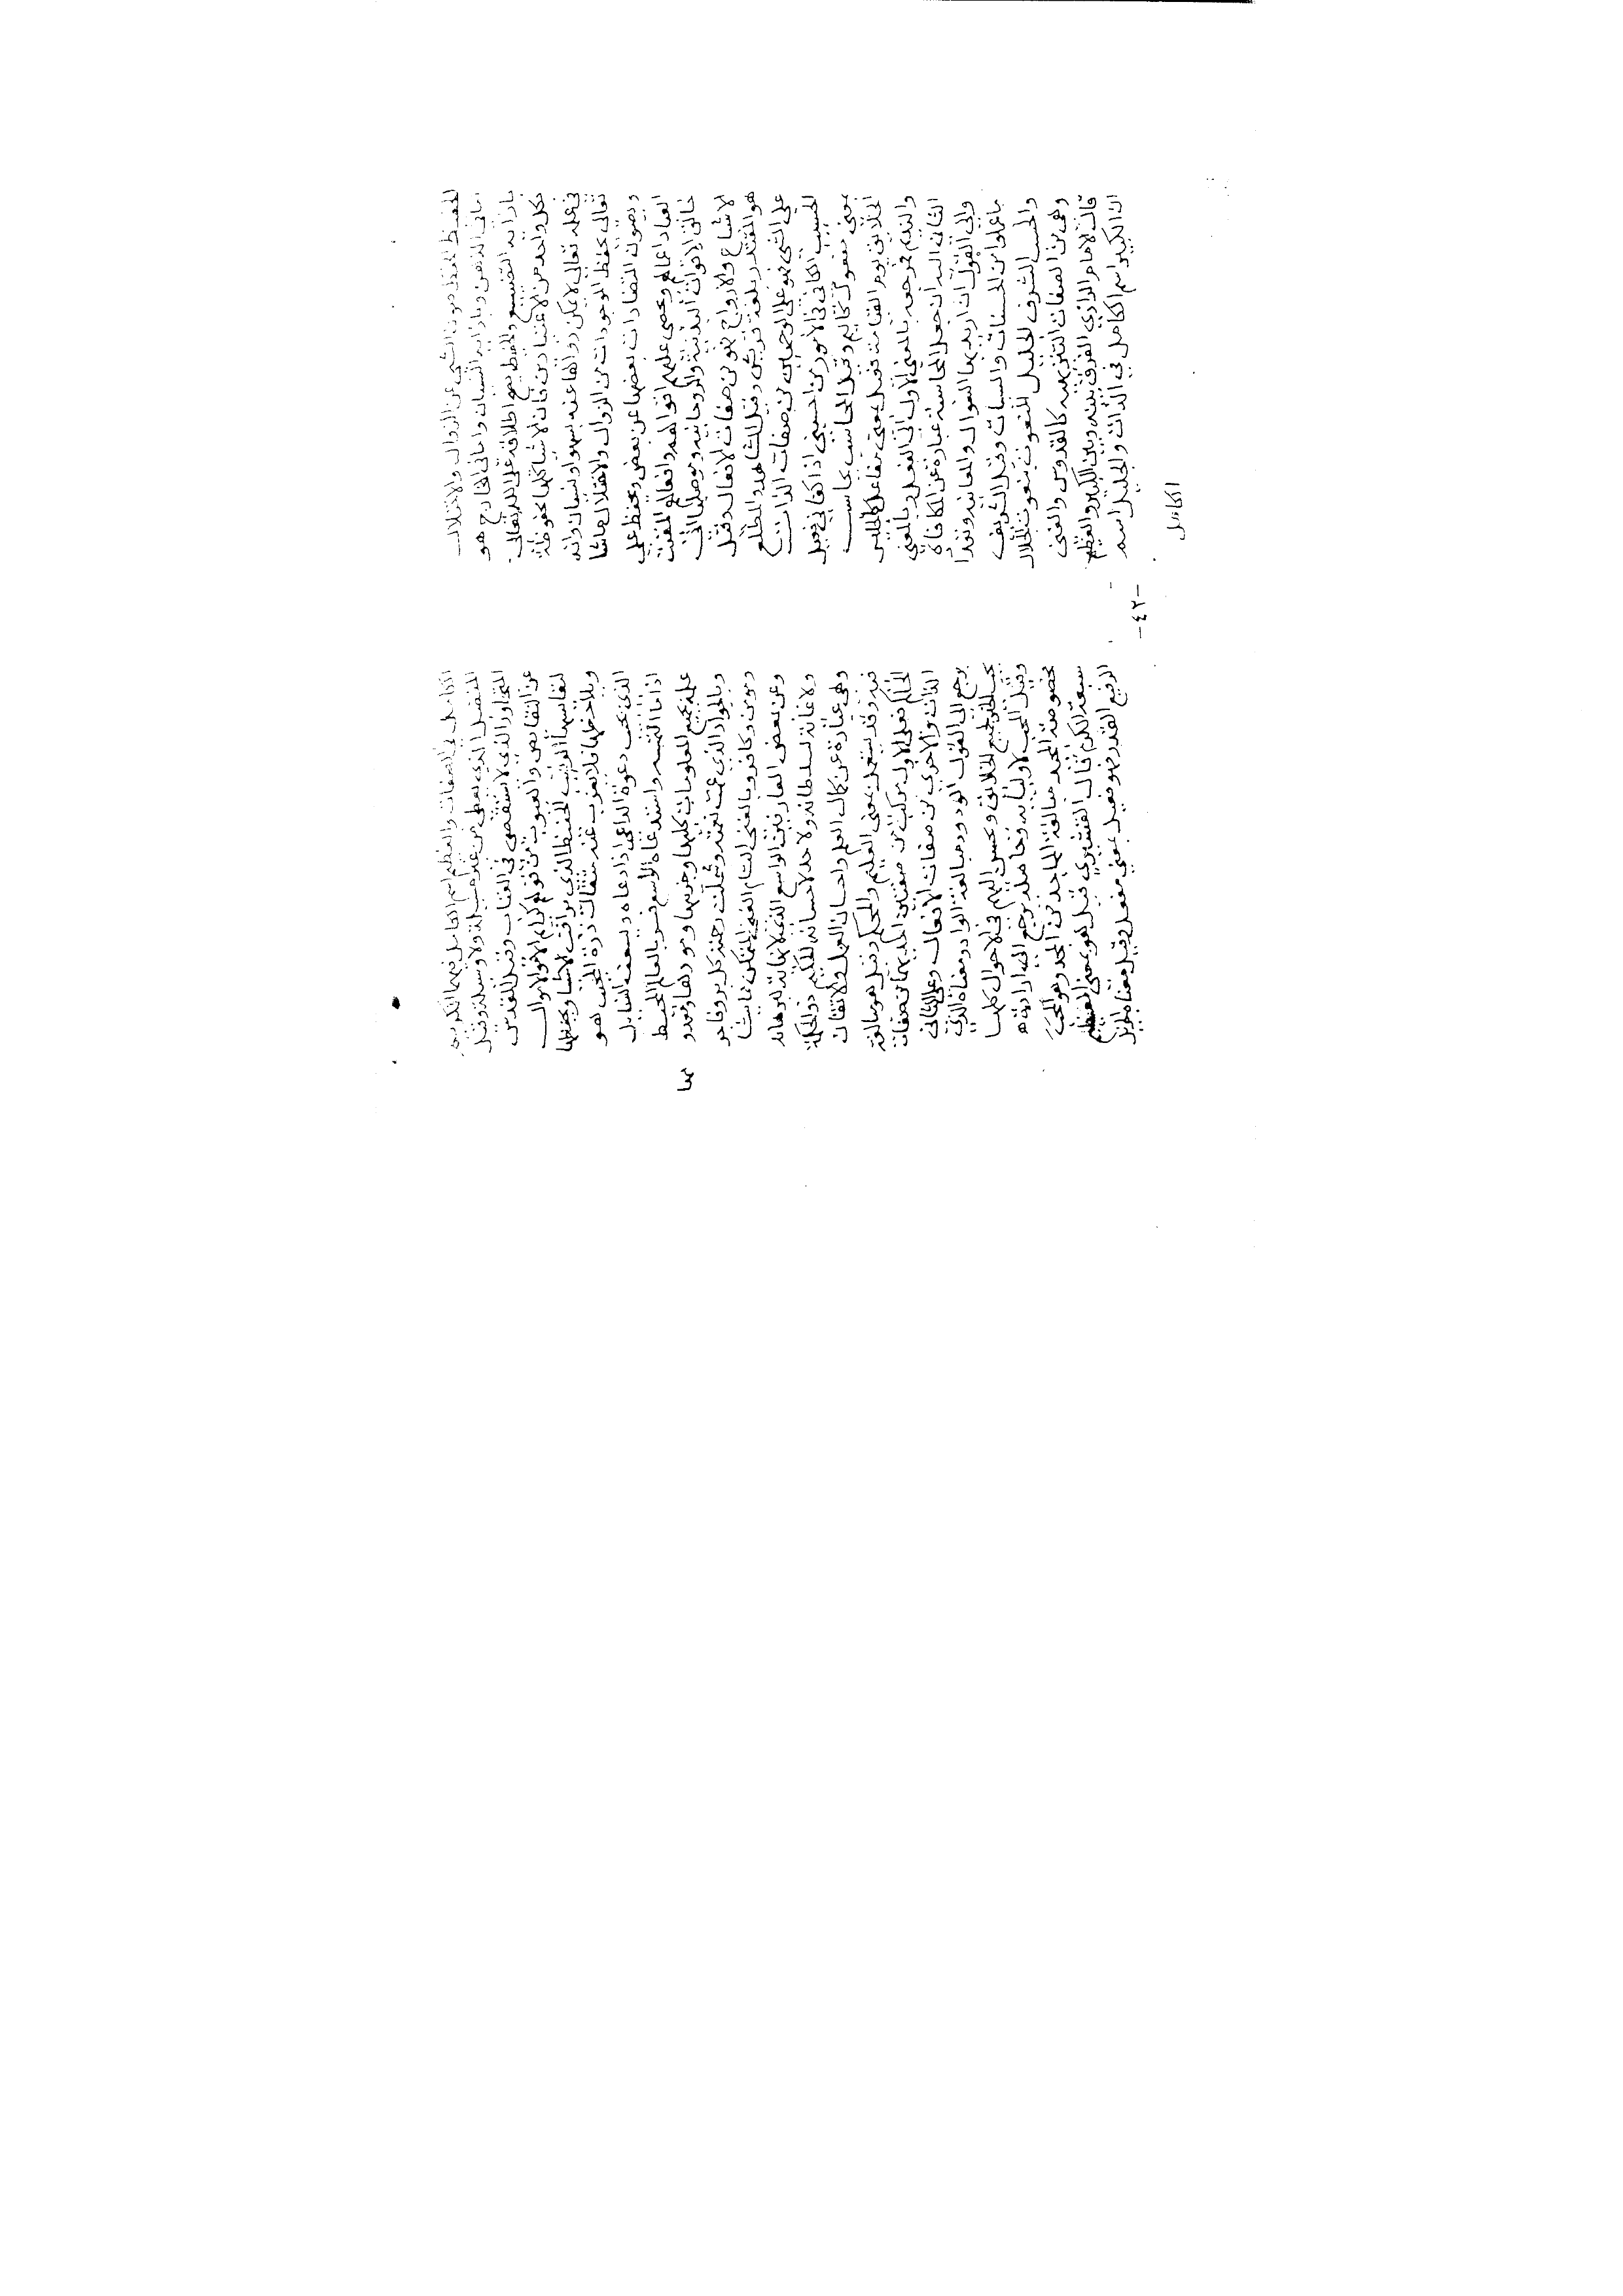 الحفيظ الحفظ صون الشئ عن الزوال والاختلال
اما فى الذهن وبازايه النسيان واما فى الخارج هو
بازايه التضييع والحفيظ يصح اطلاقه على الله تعالى
بكل واحد من الاعتبارين فان الاشيا كلها محفوظة
فى علمه تعالى لا يمكن زوالها عنه بسهو او نسيان وانه
تعالى يحفظ الموجودات من الزوال والاختلال ما شا
ويصون المتضادات بعضها عن بعض ويحفظ على
العباد اعمالهم ويحصى عليهم اقوالهم وافعالهم المقيت
خالق الاقوات البدنية والروحانية وموصلها الى
الاشباح والارواح فهو من صفات الافعال وقيل
هو المقتدر بلغة قريش وقيل الشاهد والمطلع
على الشئ فهو على الوجهين من صفات الذات
الحسيب الكافى فى الامور من احسبنى اذا كفانى فعيل
بمعنى مفعول كاليم وقيل المحاسب يحاسب
الخلايق يوم القيامة فعيل بمعنى مفاعل كالجليس
والنديم فمرجعه بالمعنى الاول الى الفعل وبالمعنى
الثانى اليه ان جعل المحاسبة عبارة عن المكافاة
والى القول ان اريد بها السوال والمعاتبة وتعداد
ما عملوا من الحسنات والسيات وقيل الشريف
والحسب الشرف الجليل المنعوت بنعوت الجلال
وهى من الصفات التنزيهية كالقدوس والغنى
قال الامام الرازى الفرق بينه وبين الكبير والعظيم
ان الكبير اسم الكامل فى الذات والجليل اسم
الكامل
-٤٢-
الكامل فى الصفات والعظيم اسم الكامل فيهما الكريم
المتفضل الذى يعطى من غير مسيلة ولا وسيلة وقيل
المتجاوز الذى لا يستقصى فى العتاب وقيل المقدس
عن النقايص والعيوب من قولهم كرايم الاموال
لنفايسها الرقيب الحفيظ الذى يراقب الاشيا ويحفظها
ويلاحظها فلا يعزب عنه مثقال ذرة المجيب هو
الذى يجيب دعوة الداعى اذا دعاه ويسعف السايل
اذا ما التمسه واستدعاه الواسع فسر بالعالم المحيط
علمه بجميع المعلومات كليها وجزئيها موجودها ومعدومها
وبالجواد الذى عمت نعمته وشملت رحمته كل بر وفاجر
ومومن وكافر وبالغنى التام الغنى المتمكن مما يشا
وعن بعض العارفين الواسع الذى لا نهاية لبرهانه
ولا غاية لسلطانه ولا حد لاحسانه الحكيم ذو الحكمة
وهى عبارة عن كمال العلم واحسان العمل والاتقان
فيه وقد يستعمل بمعنى العليم والمحكم وقيل هو مبالغة
الحاكم فعلى الاول مركب من صفتين احديهما من صفات
الذات والاخرى من صفات الافعال وعلى الثانى
يرجع الى القول الودود مبالغة الواد ومعناه الذى
يحب الخير لجميع الخلايق ويحسن اليهم فى الاحوال كلها
وقيل المحب لاوليايه وحاصله يرجع الى ارادة
مخصوصة المجيد مبالغة الماجد من المجد وهو
سعة الكرم قال القشيرى قيل هو بمعنى العظيم
الرفيع القدر فهو فعيل بمعنى مفعل وقيل معناه الجزيل